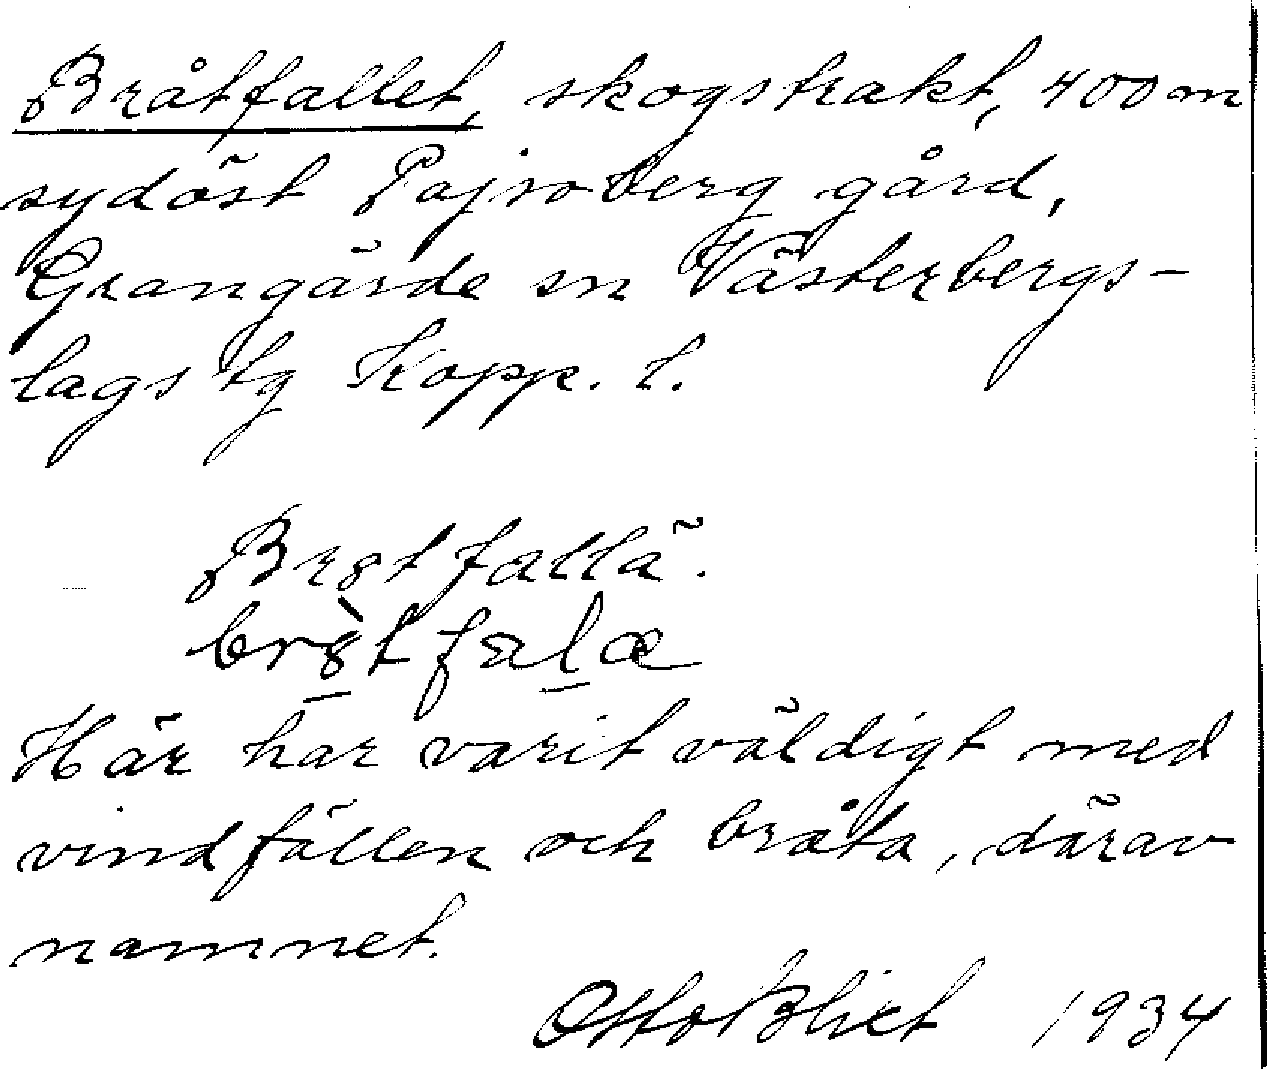 Bråtfallet, skogstrakt, 400 m
sydöst Pajsoberg gård,
Grangärde sn Västerbergs-
lags tg Kopp. l.
Brotfallä.
Här har varit väldigt med
vindfällen och bråta, därav
namnet.
Otto Blixt 1934